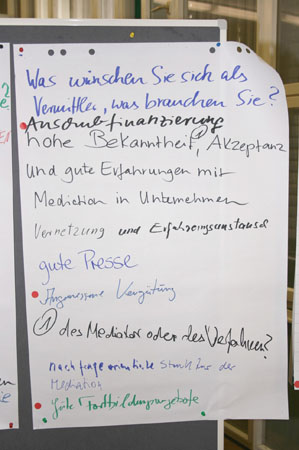 Was wünschen Sie sich als
Vermittler, was brauchen Sie?
Anschubfinanzierung
hohe Bekanntheit ①, Akzeptanz
und gute Erfahrungen mit
Mediation in Unternehmen
Vernetzung und Erfahrungsaustausch
gute Presse
Angemessene Vergütung
① des Mediators oder des Verfahrens?
nachfrageorientierte Struktur der
Mediation
gute Fortbildungsangebote